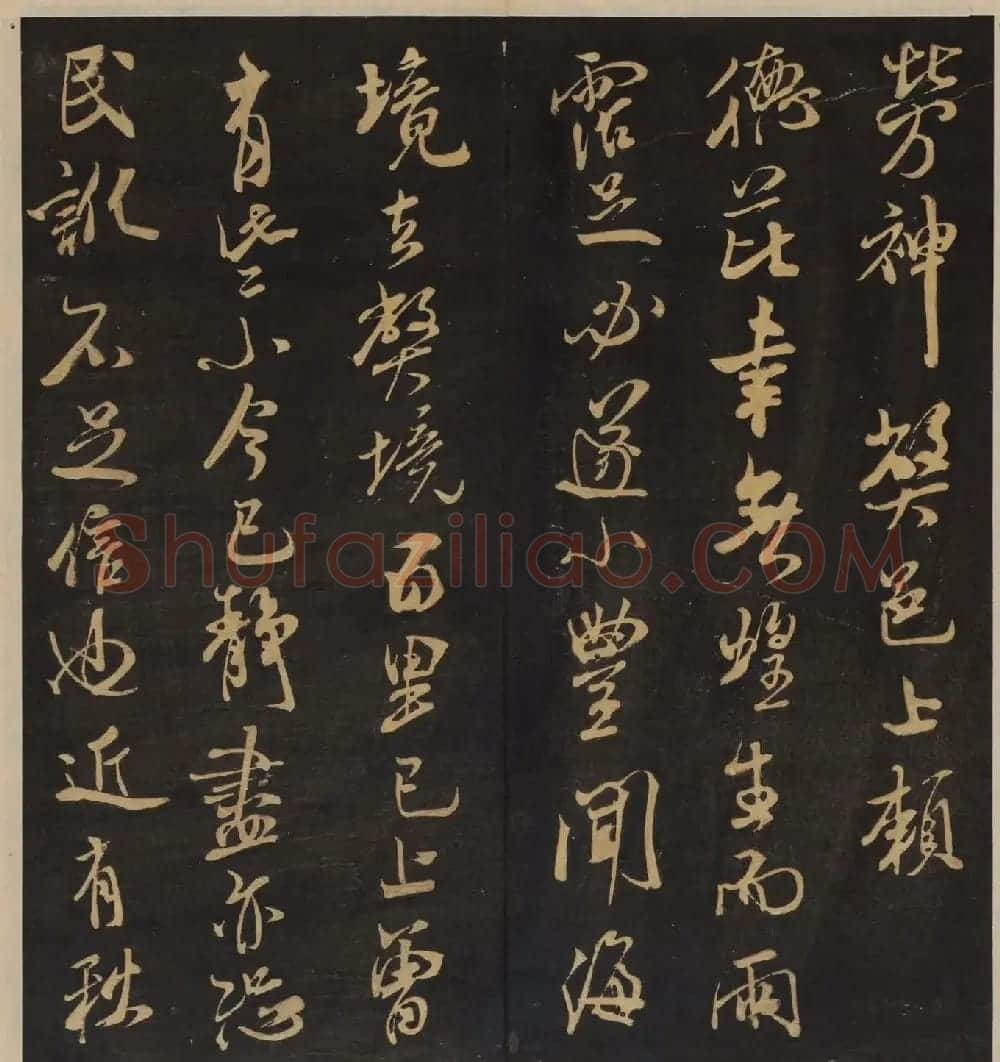 勞神 獘邑上賴
德芘幸無蝗生而雨
霑足必遂小豐聞海
境去獘境百里已上曾
有些小今已靜盡亦恐
民訛不足信也近有秣
Shufaziliao.COM